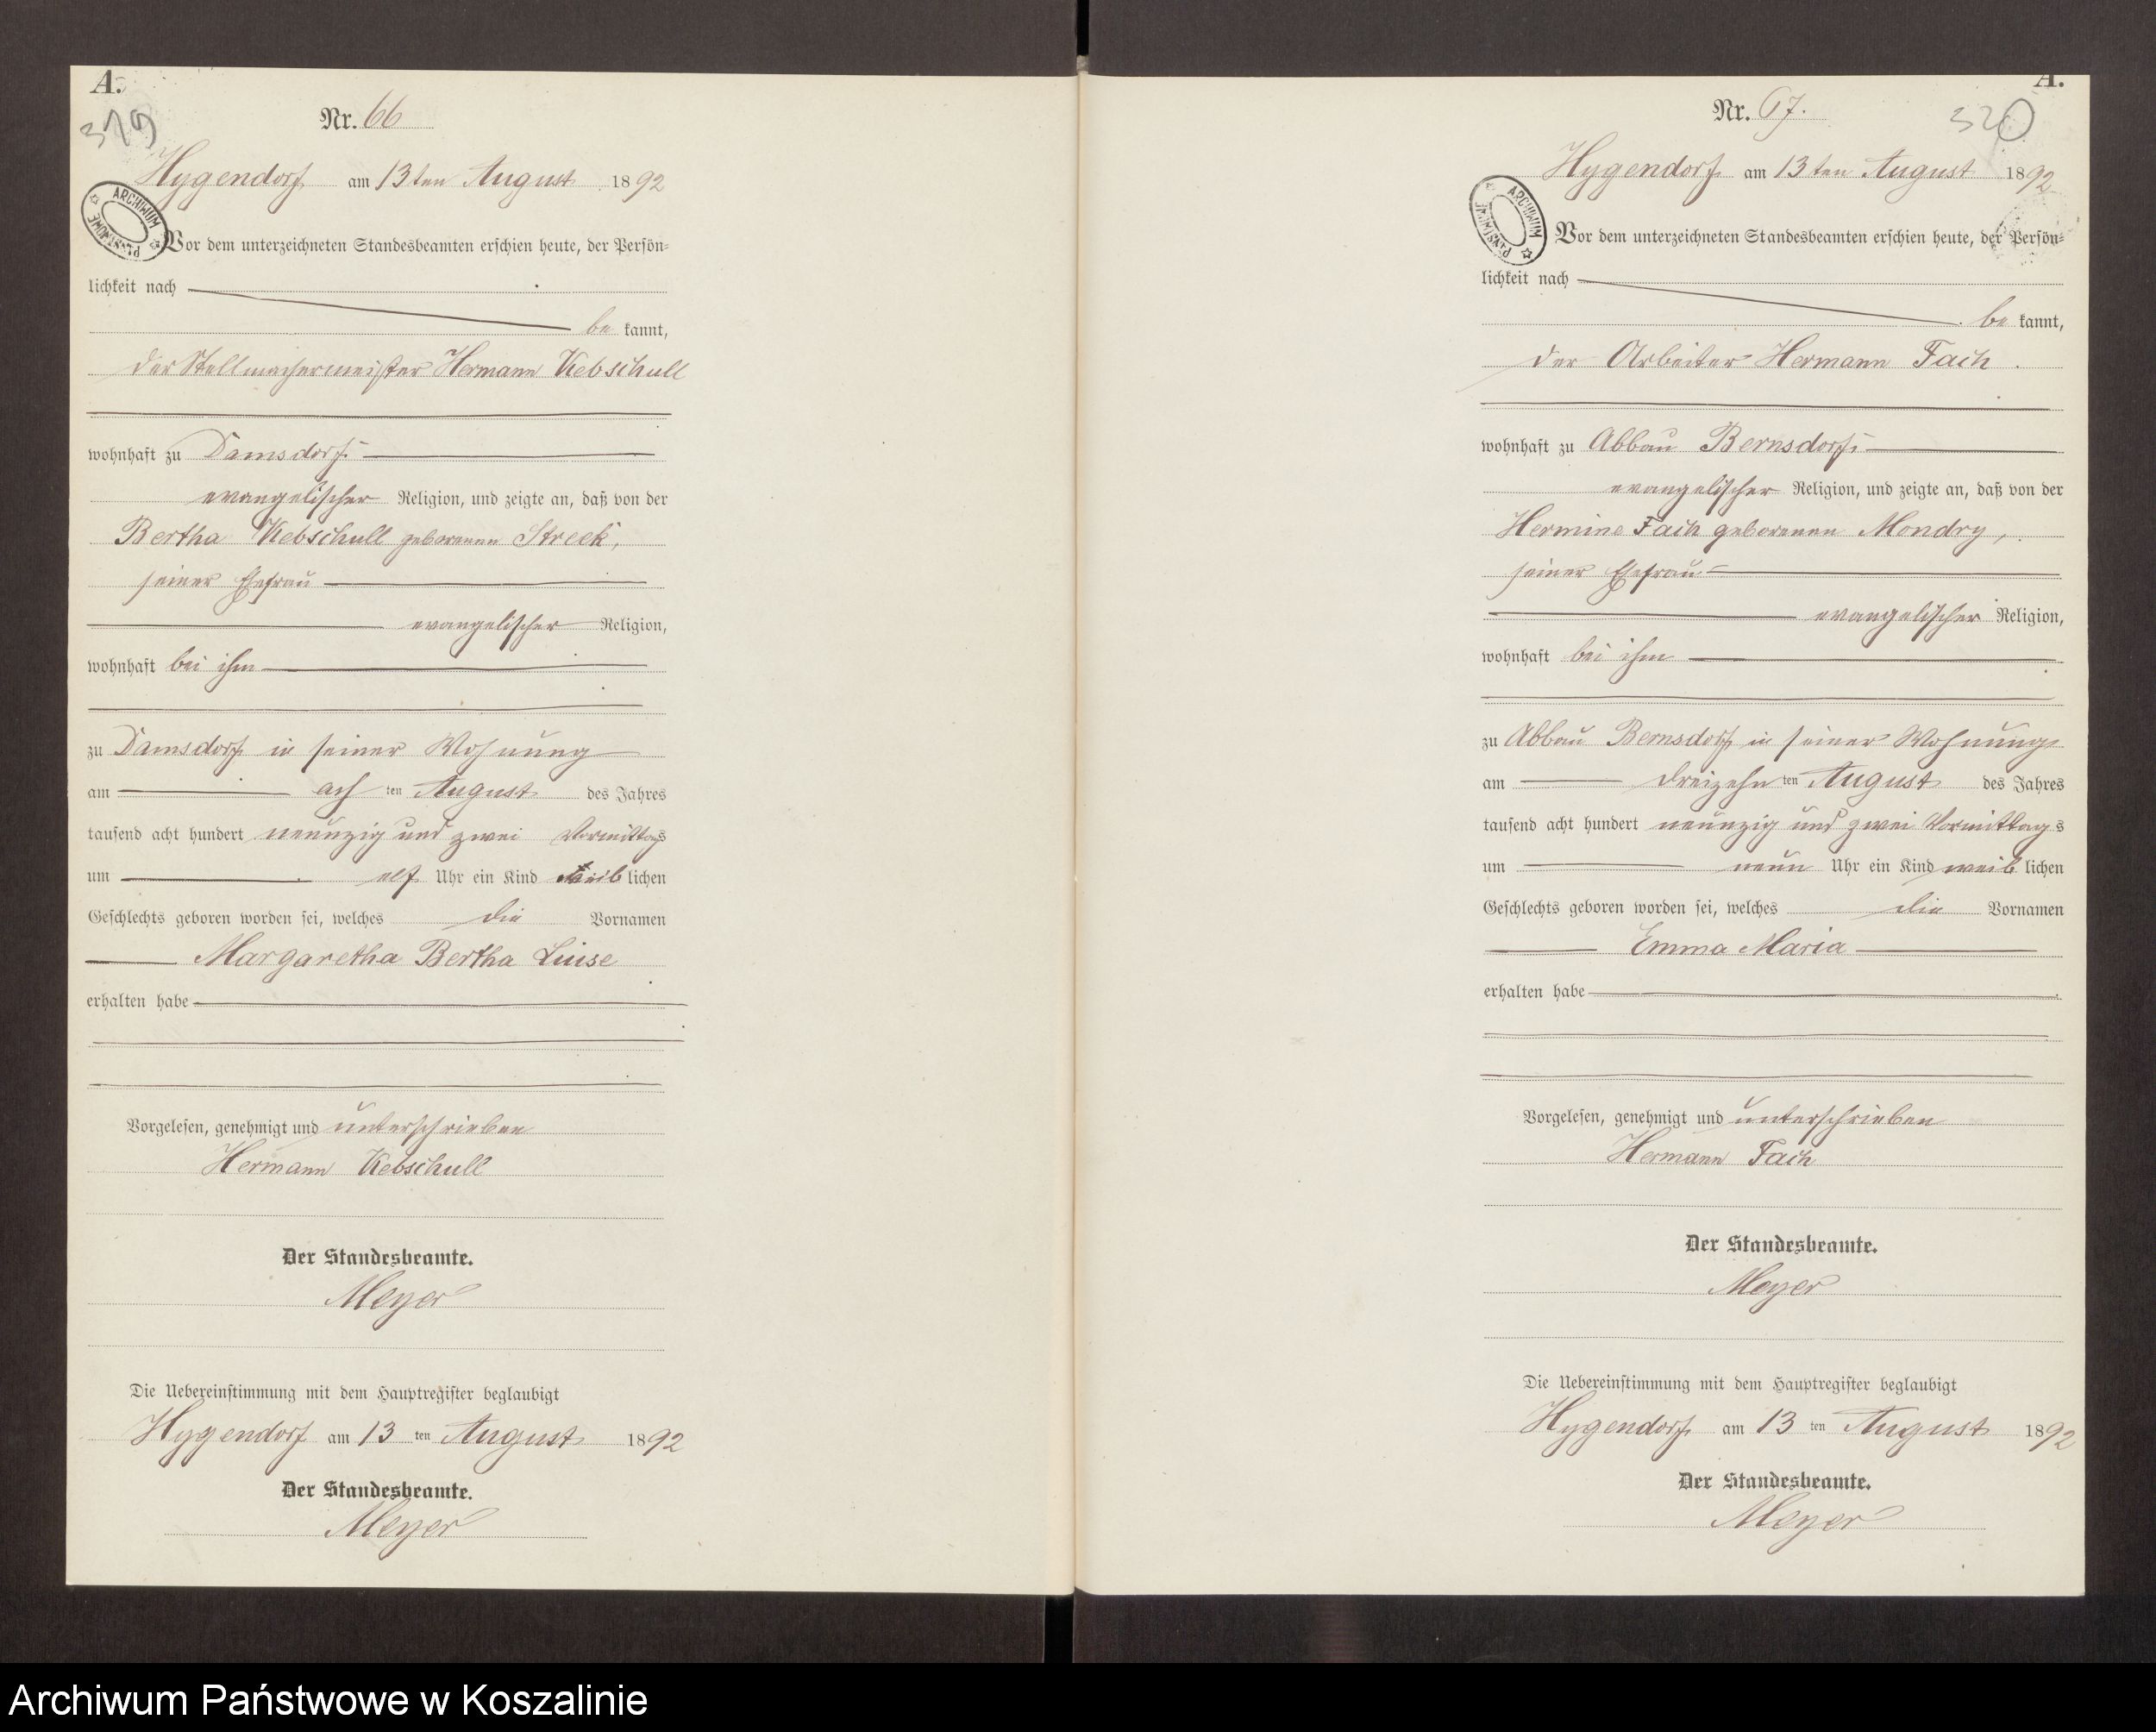 A.
319
Nr. 66
Hygendorf am 13ten August 1892
ARCHIWUM PAŃSTWOWE
Vor dem unterzeichneten Standesbeamten erschien heute, der Persön=
lichkeit nach
be kannt,
der Stellmachermeister Hermann Kebschull
wohnhaft zu Damsdorf
evangelischer Religion, und zeigte an, daß von der
Bertha Kebschull geborenen Streek,
seiner Ehefrau
evangelischer Religion,
wohnhaft bei ihm
zu Damsdorf in seiner Wohnung
am ach ten August des Jahres
tausend acht hundert neunzig und zwei Vormittags
um elf Uhr ein Kind weib lichen
Geschlechts geboren worden sei, welches die Vornamen
Margaretha Bertha Luise
erhalten habe
Vorgelesen, genehmigt und unterschrieben
Hermann Kebschull
Der Standesbeamte.
Meyer
Die Uebereinstimmung mit dem Hauptregister beglaubigt
Hygendorf am 13 ten August 1892
Der Standesbeamte.
Meyer
A.
320
Nr. 67.
Hygendorf am 13ten August 1892
ARCHIWUM PAŃSTWOWE
Vor dem unterzeichneten Standesbeamten erschien heute, der Persön=
lichkeit nach
be kannt,
der Arbeiter Hermann Fach
wohnhaft zu Abbau Bernsdorf
evangelischer Religion, und zeigte an, daß von der
Hermine Fach geborenen Mondry,
seiner Ehefrau
evangelischer Religion,
wohnhaft bei ihm
zu Abbau Bernsdorf in seiner Wohnung
am dreizehn ten August des Jahres
tausend acht hundert neunzig und zwei Vormittag s
um neun Uhr ein Kind weib lichen
Geschlechts geboren worden sei, welches die Vornamen
Emma Maria
erhalten habe
Vorgelesen, genehmigt und unterschrieben
Hermann Fach
Der Standesbeamte.
Meyer
Die Uebereinstimmung mit dem Hauptregister beglaubigt
Hygendorf am 13 ten August 1892
Der Standesbeamte.
Meyer
Archiwum Państwowe w Koszalinie